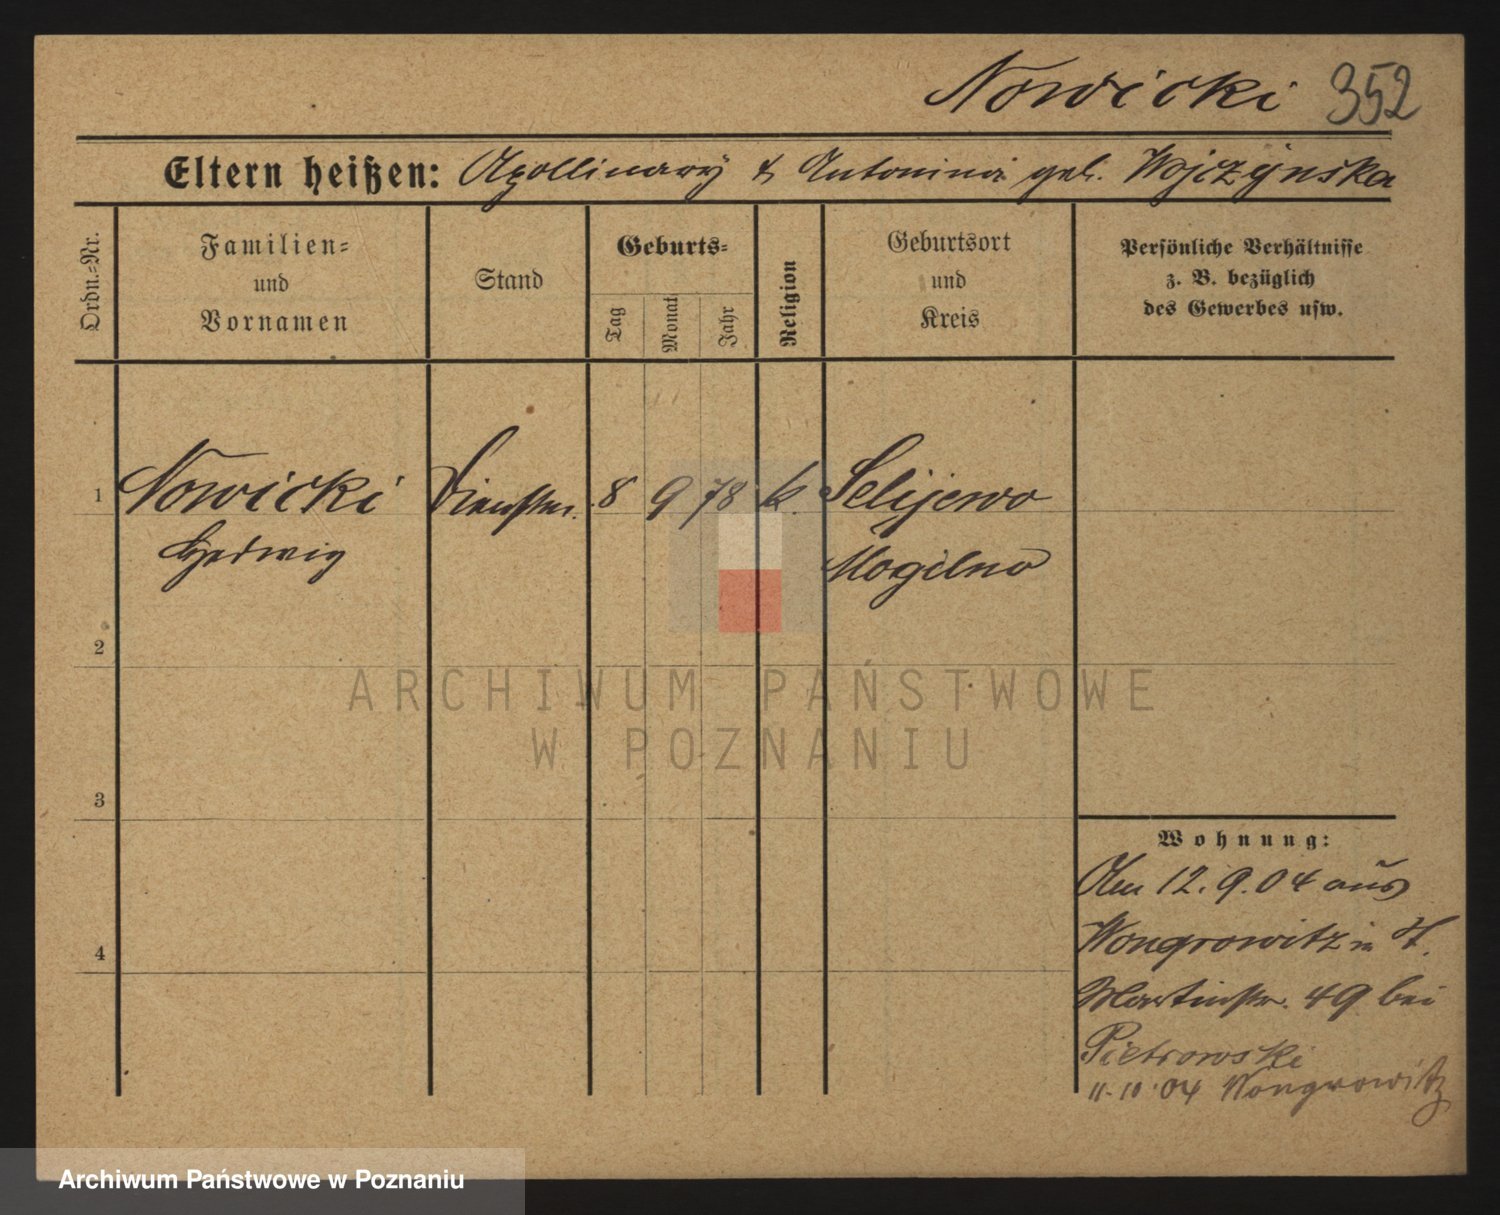 Nowicki 352
Eltern heißen: Apollinary & Antonina geb. Wojczynska
Ordn.=Nr.
Familien=
und
Vornamen
Stand
Geburts=
Tag
Monat
Jahr
Religion
Geburtsort
und
Kreis
Persönliche Verhältnisse
z. B. bezüglich
des Gewerbes usw.
1 Nowicki Dienstm. 8 9 78 k. Selijewo
Hedwig Mogilno
2
ARCHIWUM PAŃSTWOWE
W POZNANIU
3
Wohnung:
Am 12. 9. 04 aus
Wongrowitz in St.
4
Martinstr. 49 bei
Pietrowski
11.10.04 Wongrowitz
Archiwum Państwowe w Poznaniu